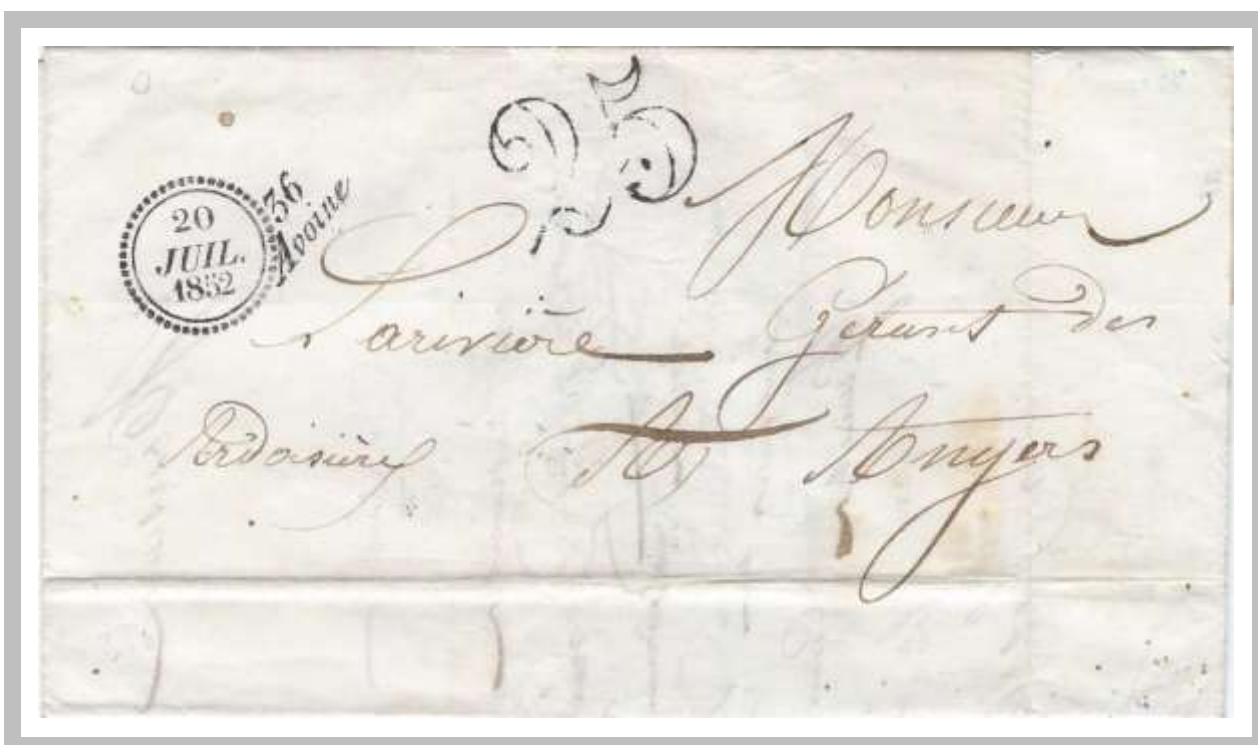 25
20
JUIL.
1852
36
Avoine
Monsieur
Larivière Gérant des
Ardoisières A Angers